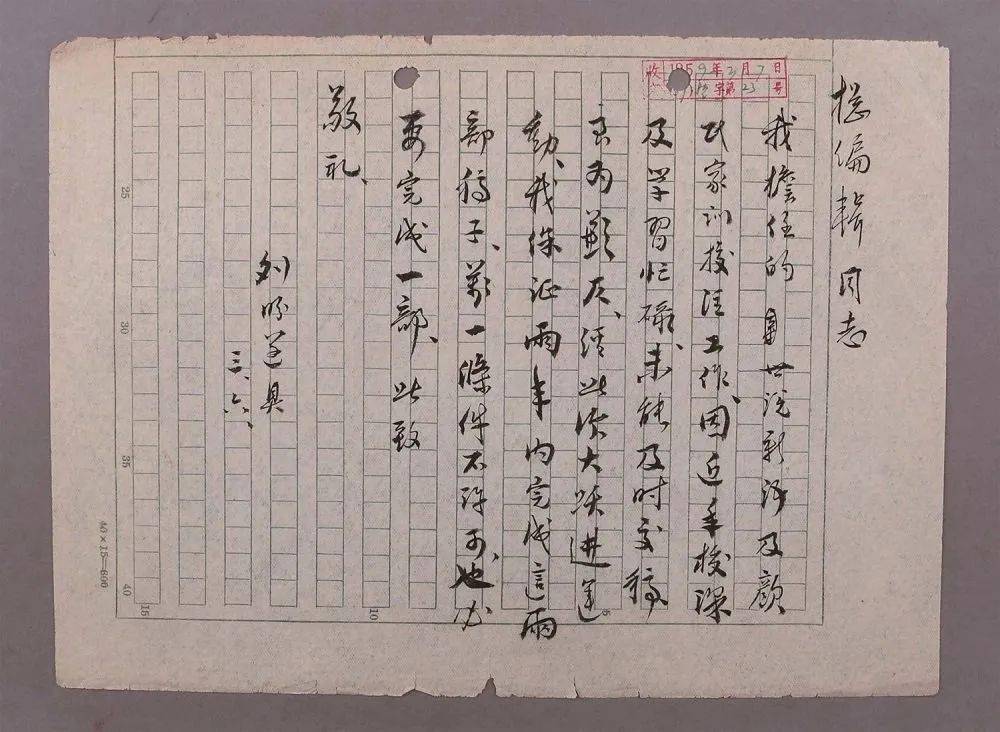 總编輯同志
我擔任的世说新语及颜
氏家训校注工作、因近年授课
及学習忙碌、未能及时交稿
甚为歉仄、经此次大跃进运
動、我保证兩年内完成這兩
部稿子、萬一條件不許可、也必
要完成一部、此致
敬礼、
刘盼遂具
三、六、
收 1959年3月7日
字第23号
25
30
35
40
5
10
15
40×15—600